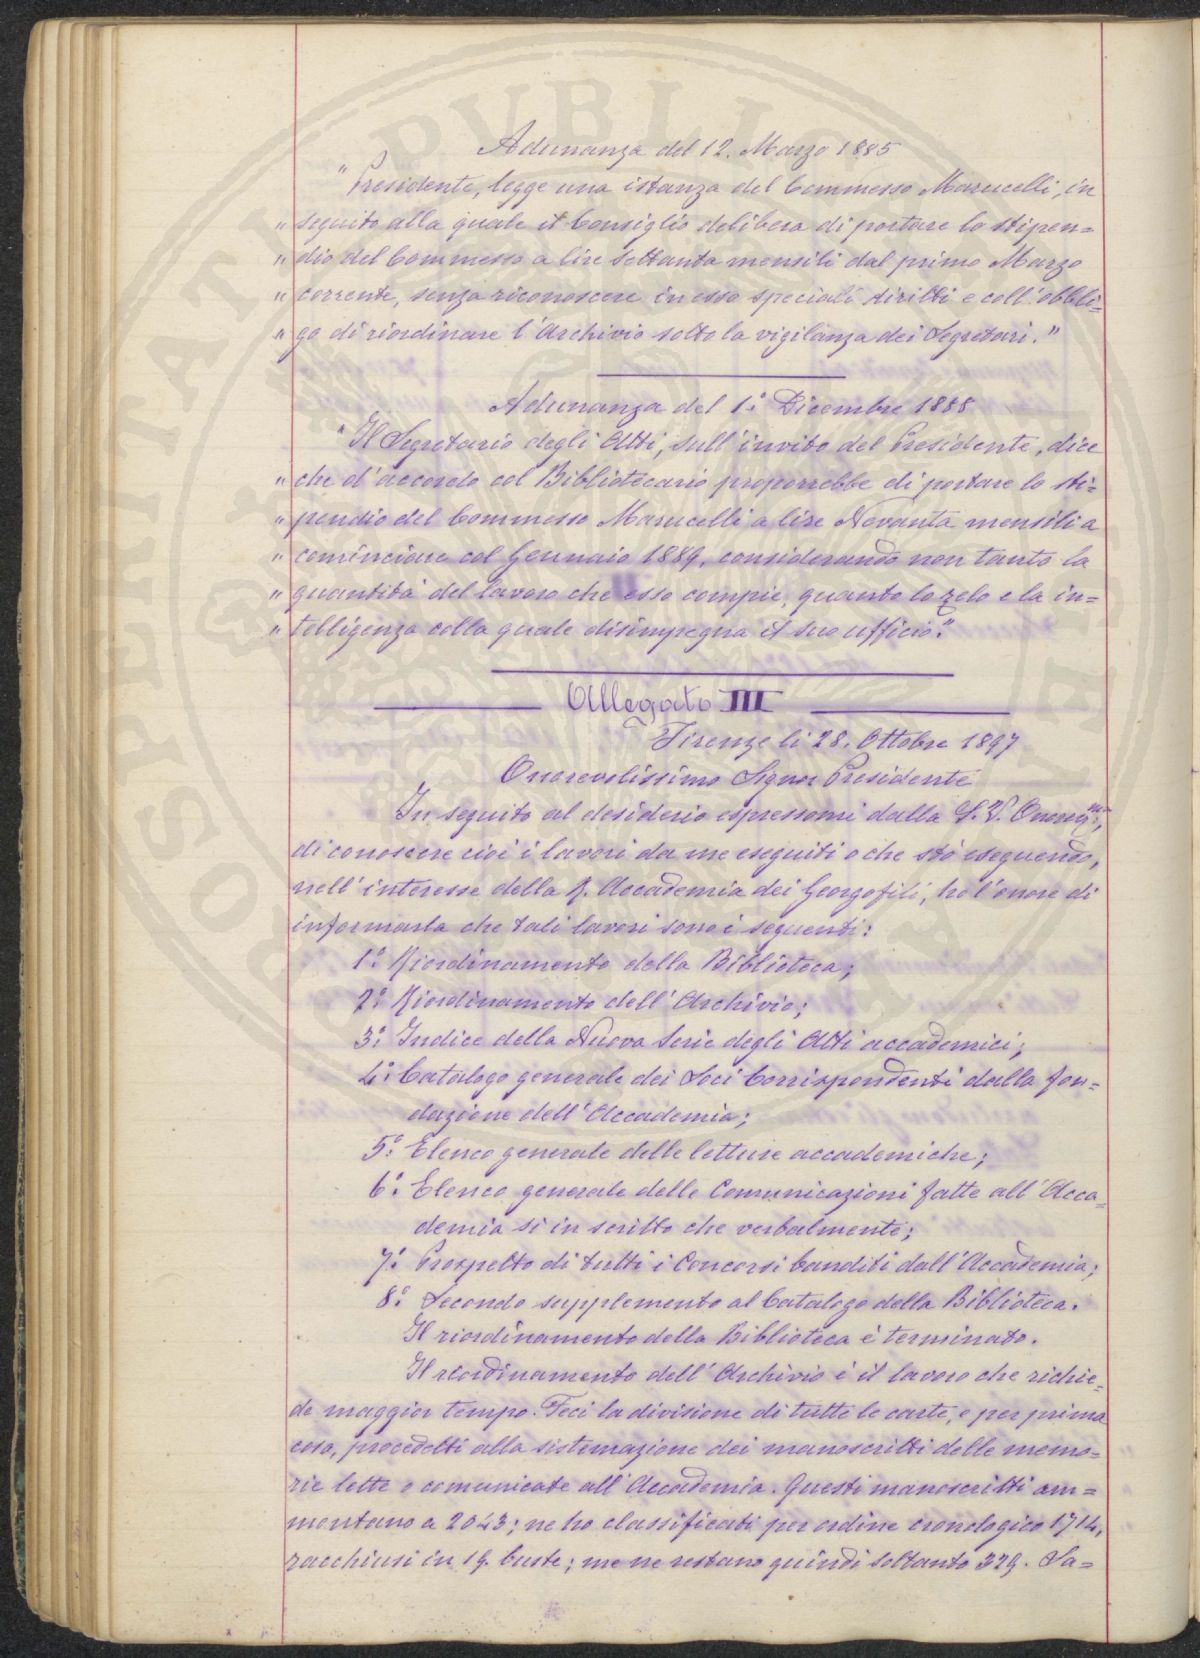 Adunanza del 12. Marzo 1885
"Presidente, legge una istanza del Commesso Marucelli, in
" seguito alla quale il Consiglio delibera di portare lo stipen=
" dio del Commesso a lire Settanta mensili dal primo Marzo
" corrente, senza riconoscere in esso speciali diritti e coll'obbli=
" go di riordinare l'Archivio sotto la vigilanza dei Segretari."
Adunanza del 1° Dicembre 1888
"Il Segretario degli Atti, sull'invito del Presidente, dice
" che d'accordo col Bibliotecario proporrebbe di portare lo sti=
" pendio del Commesso Marucelli a lire Novanta mensili a
" cominciare col Gennaio 1889, considerando non tanto la
" quantità del lavoro che esso compie, quanto lo zelo e la in=
" telligenza colla quale disimpegna il suo ufficio."
Allegato III
Firenze li 28. Ottobre 1897
Onorevolissimo Signor Presidente
In seguito al desiderio espressomi dalla S. V. Onorev.ma,
di conoscere cioè i lavori da me eseguiti o che stò eseguendo,
nell'interesse della R. Accademia dei Georgofili, ho l'onore di
informarla che tali lavori sono i seguenti:
1° Riordinamento della Biblioteca;
2° Riordinamento dell'Archivio;
3° Indice della Nuova Serie degli Atti accademici;
4° Catalogo generale dei Soci Corrispondenti dalla fon=
dazione dell'Accademia;
5° Elenco generale delle letture accademiche;
6° Elenco generale delle Comunicazioni fatte all'Acca=
demia sì in scritto che verbalmente;
7° Prospetto di tutti i Concorsi banditi dall'Accademia;
8° Secondo supplemento al Catalogo della Biblioteca.
Il riordinamento della Biblioteca è terminato.
Il riordinamento dell'Archivio è il lavoro che richie=
de maggior tempo. Feci la divisione di tutte le carte, e per prima
cosa, procedetti alla sistemazione dei manoscritti delle memo=
rie lette o comunicate all'Accademia. Questi manoscritti am=
montano a 2043; ne ho classificati per ordine cronologico 1714,
racchiusi in 19. buste; me ne restano quindi soltanto 329. Sa=